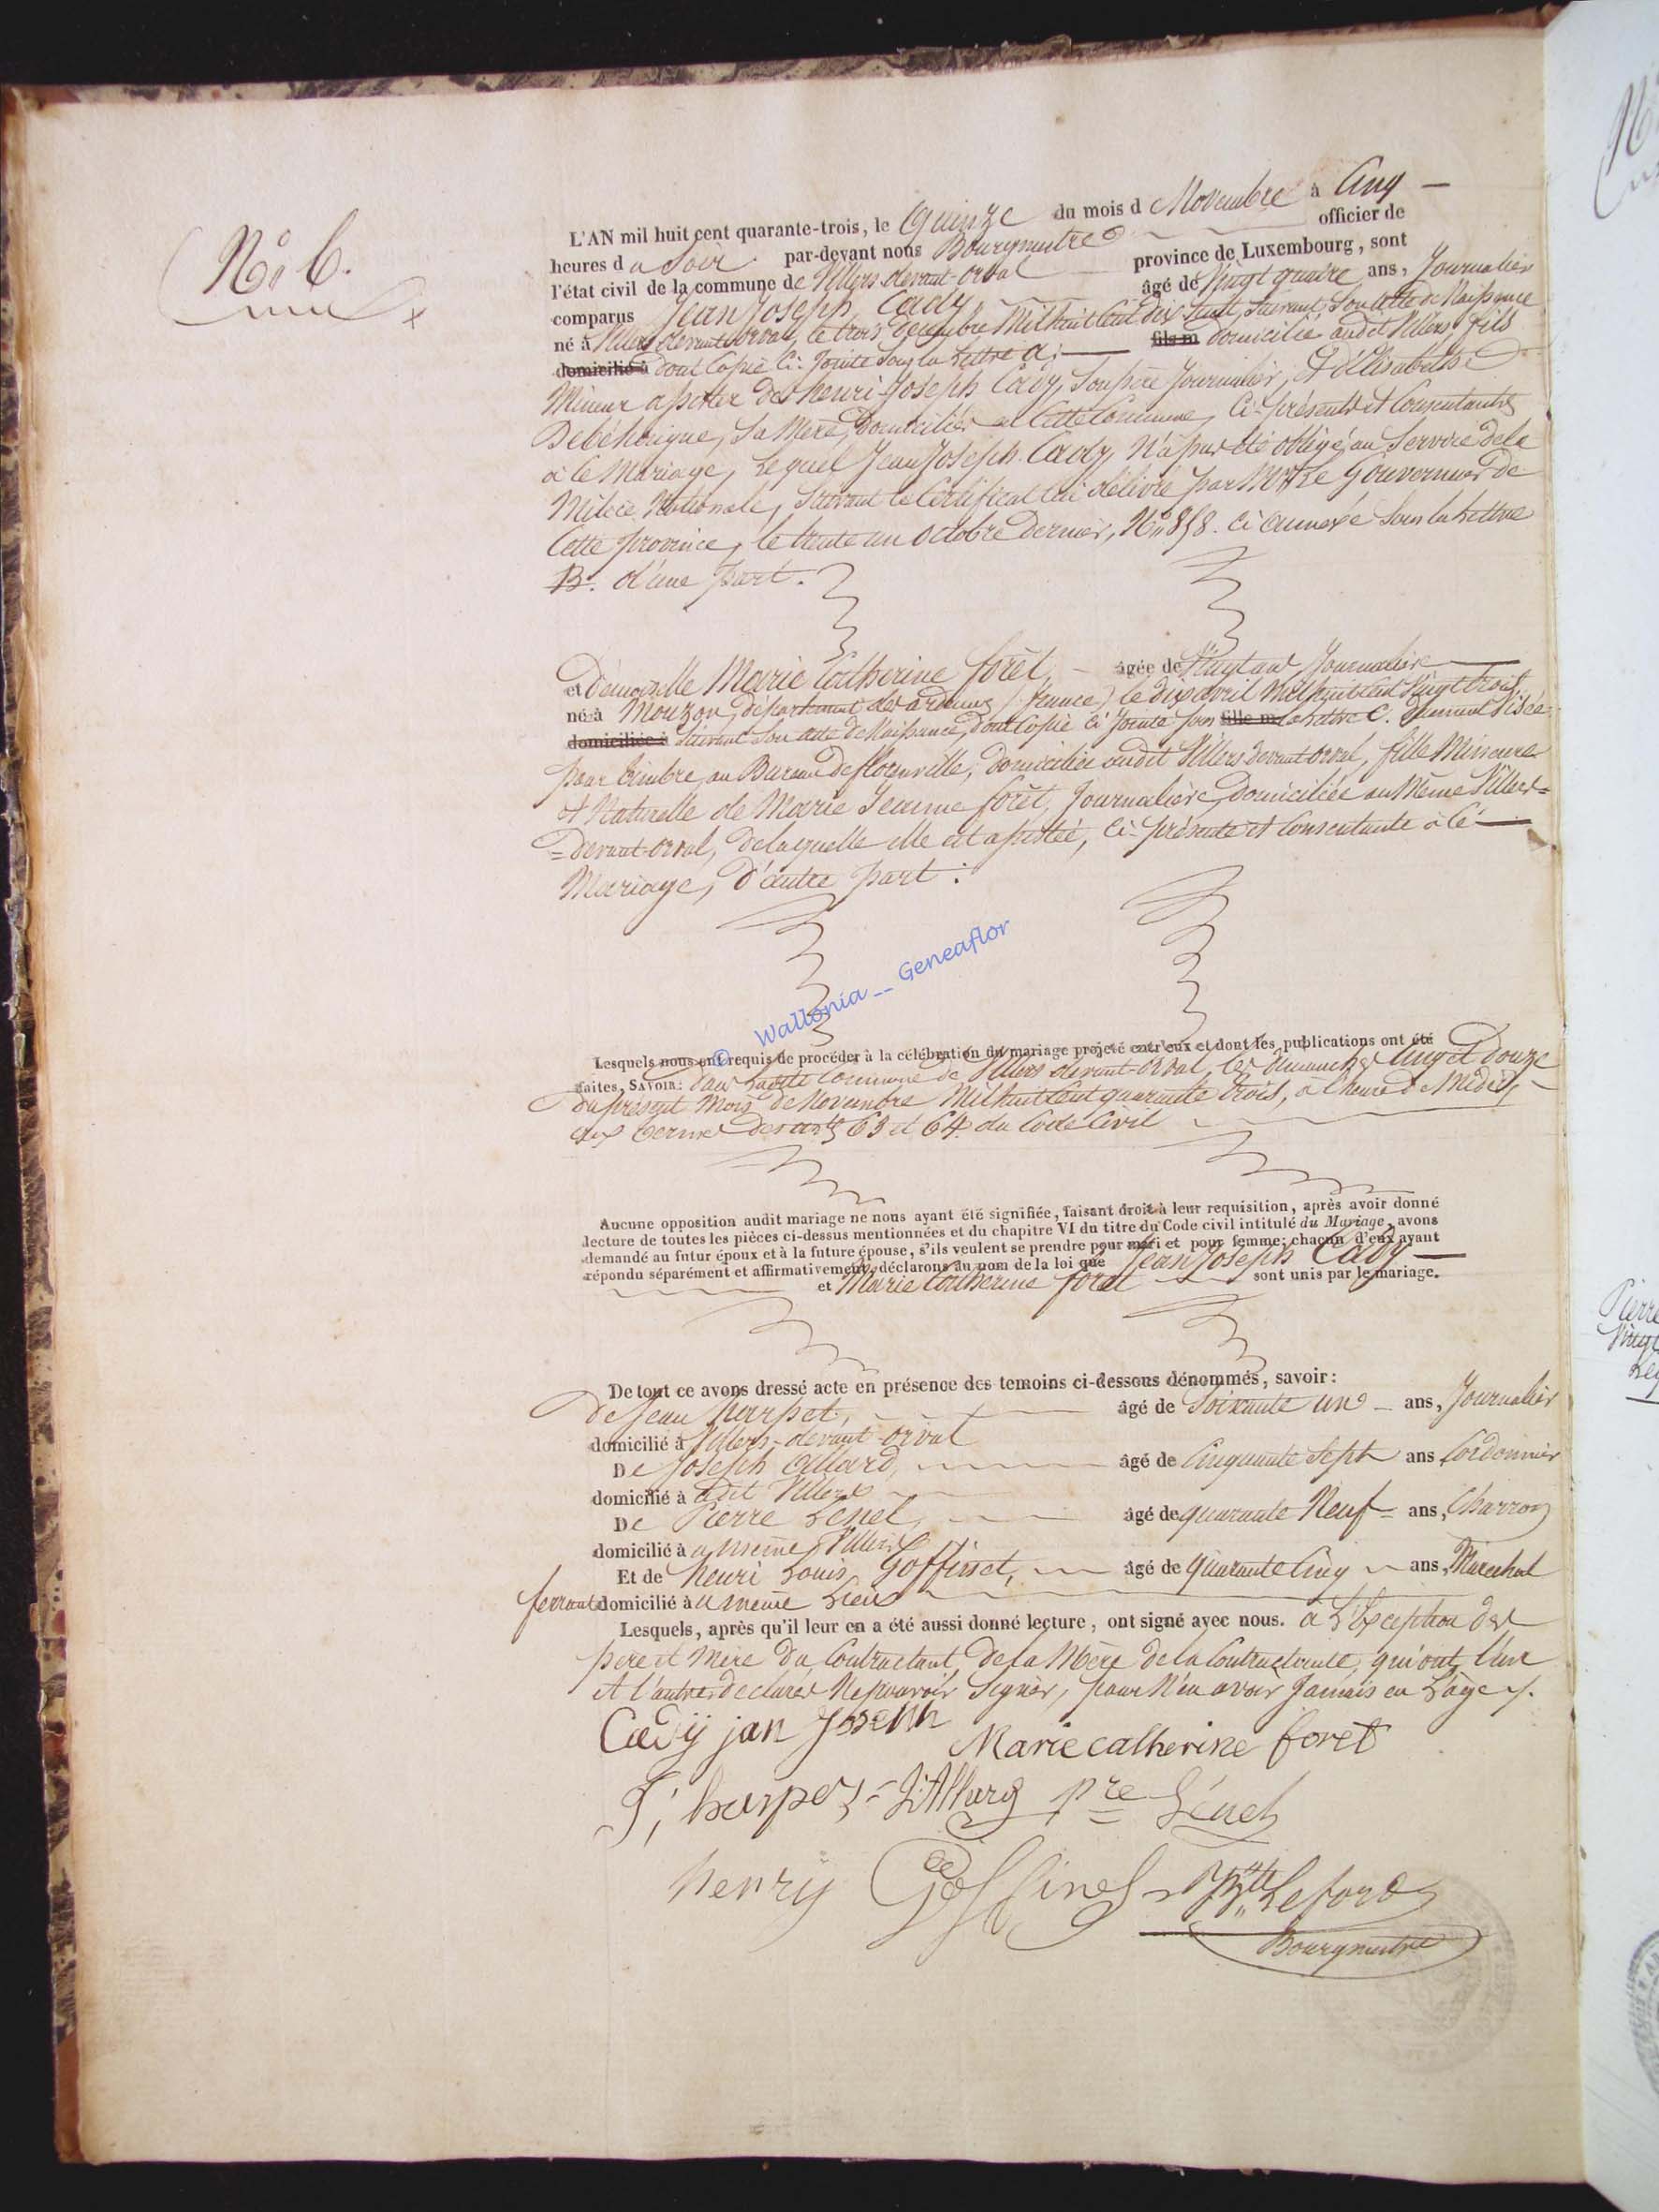 N° 6.
L'AN mil huit cent quarante-trois, le Quinze du mois d Novembre à Cinq
heures d u Soir par-devant nous Bourgmestre officier de
l'état civil de la commune de Villers-devant-orval province de Luxembourg, sont
comparus Jean Joseph Cady, âgé de Vingt quatre ans, Journalier
né à Villers devant orval, le trois décembre Mil huit Cent dix huit, Suivant Son acte de Naissance
domicilié à dont Copie Ci-Jointe Sous la Lettre a; fils m domicilié audit Villers fils
Mineur assisté de henri-Joseph Cady, Son père Journalier, Et d'Elisabeth
Debéhoigne, Sa Mère, Domiciliés en Cette Commune, Ci-présents et Consentants
à Ce Mariage, Lequel Jean Joseph Cady, N'a pas été obligé au Service de la
Milice Nationale, Suivant le Certificat lui délivré par Mr Le Gouverneur de
Cette province, le trente un Octobre Dernier, N° 858. Ci annexé Sous la Lettre
B. d'une part.
et Demoiselle Marie Catherine forêt, âgée de Vingt ans Journalière
né à Mouzon, département des ardennes (france) le dix avril Mil huit Cent Vingt trois,
domiciliée à Suivant Son acte de Naissance, dont Copie Ci Jointe Sous fille m la Lettre C. Visée
pour timbre au Bureau de florenville, Domiciliée audit Villers devant orval, fille Mineure
Et Naturelle de Marie Jeanne forêt, Journalière, Domiciliée au Même Villers=
=devant-orval, de laquelle elle est assistée, Ci-présente et Consentante à Ce
Mariage, D'autre part.
© Wallonia -- Geneaflor
Lesquels nous ont requis de procéder à la célébration du mariage projeté entr'eux et dont les publications ont été
faites, SAVOIR: dans Ladite Commune de Villers devant-orval, les dimanches Cinq et Douze
du présent Mois de Novembre Mil huit Cent quarante trois, à l'heure de Midi,
aux termes des arts 63 et 64 du Code Civil
Aucune opposition audit mariage ne nous ayant été signifiée, faisant droit à leur requisition, après avoir donné
lecture de toutes les pièces ci-dessus mentionnées et du chapitre VI du titre du Code civil intitulé du Mariage, avons
demandé au futur époux et à la future épouse, s'ils veulent se prendre pour mari et pour femme; chacun d'eux ayant
répondu séparément et affirmativement, déclarons au nom de la loi que Jean Joseph Cady
et Marie Catherine forêt sont unis par le mariage.
De tout ce avons dressé acte en présence des temoins ci-dessous dénommés, savoir:
de Jean harpet, âgé de Soixante un ans, Journalier
domicilié à Villers-devant-orval
De Joseph Allard, âgé de Cinquante Sept ans Cordonnier
domicilié à udit Villers
De Pierre Lenel, âgé de quarante Neuf ans, Charron
domicilié à u même Villers
Et de henri Louis Goffinet, âgé de quarante Cinq ans, Marechal
ferrant domicilié à u même Lieu
Lesquels, après qu'il leur en a été aussi donné lecture, ont signé avec nous. a L'exception des
père et Mère du Contractant, de la Mère de la Contractante, qui ont l'un
et l'autre déclarés Ne pouvoir Signer, pour N'en avoir Jamais eu L'age.
Cadÿ jan Joseph
Marie catherine foret
J, harpez J. Allard pre Lénel
henry Goffinet Bte Leford
Bourgmestre